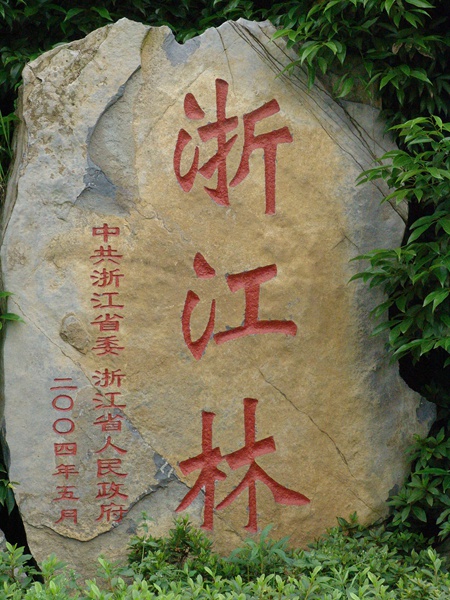 浙江林
中共浙江省委 浙江省人民政府
二〇〇四年五月